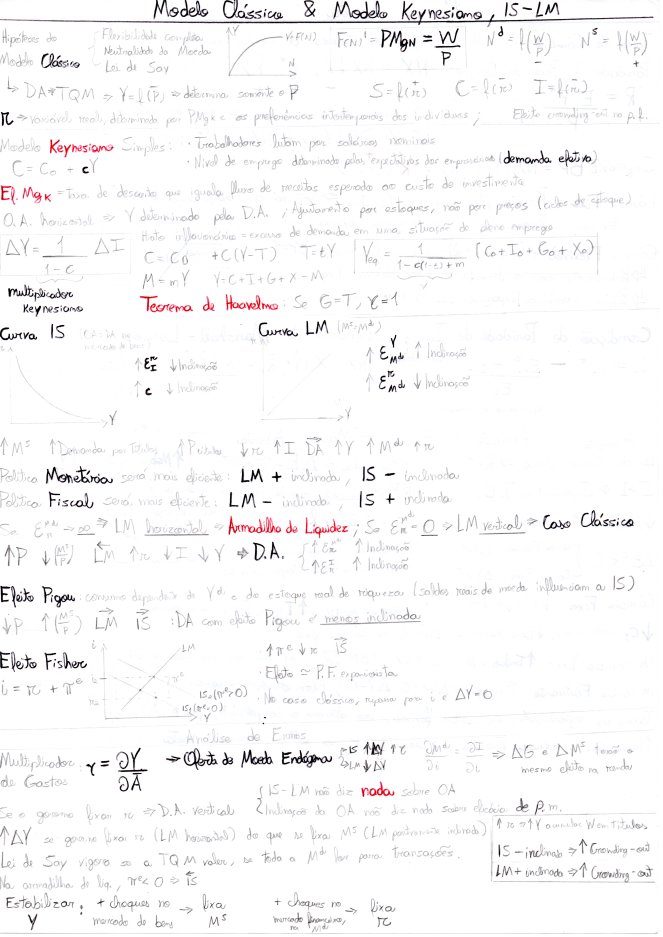 Modelo Clássico & Modelo Keynesiano, IS-LM
Hipóteses do Modelo Clássico { Flexibilidade completa
Neutralidade da Moeda
Lei de Say
Y
Y=F(N)
N
F(N)' = PMgN = W/P
N^d = f(W/P)
-
N^s = f(W/P)
+
↳ DA = TQM ⇒ Y = f(P) ⇒ determina somente o P
S = f(r) C = f(r) I = f(r)
r → variável real, determinada por PMgK e as preferências intertemporais dos indivíduos ; Efeito crowding-out na p.f.
Modelo Keynesiano Simples: · Trabalhadores lutam por salários nominais
· Nível de emprego determinado pelas expectativas dos empresários (demanda efetiva)
C = C0 + cY
Ef. MgK = Taxa de desconto que iguala fluxo de receitas esperado ao custo de investimento
O.A. horizontal ⇒ Y determinado pela D.A. ; Ajustamento por estoques, não por preços (ciclos de estoque)
Hiato inflacionário = excesso de demanda em uma situação de pleno emprego
ΔY = 1/(1-c) ΔI
C = C0 + C(Y-T) T = tY
M = mY Y = C+I+G+X-M
Yeq = 1/(1-c(1-t)+m) (C0 + I0 + G0 + X0)
multiplicador Keynesiano
Teorema de Haavelmo: Se G=T, γ=1
Curva IS
Curva LM (M^s=M^d)
↑ε_I^r ↓Inclinação
↑c ↓Inclinação
↑ε_Md^Y ↑Inclinação
↑ε_Md^r ↓Inclinação
Y
Y
↑M^s ↑Demanda por Títulos ↑Ptítulos ↓r ↑I DA ↑Y ↑M^d ↑r
Política Monetária será mais eficiente: LM + inclinada, IS - inclinada
Política Fiscal será mais eficiente: LM - inclinada, IS + inclinada
Se ε → ∞ ⇒ LM horizontal ⇒ Armadilha de Liquidez ; Se ε = 0 ⇒ LM vertical ⇒ Caso Clássico
↑P ↓(M^s/P) LM ↑r ↓I ↓Y ⇒ D.A. { ↑ε ↑Inclinação
↑ε ↑Inclinação
Efeito Pigou: consumo dependente de Y^d e do estoque real de riqueza (saldos reais de moeda influenciam a IS)
↓P ↑(M^s/P) LM IS : DA com efeito Pigou é menos inclinada
Efeito Fisher
i = r + π^e
i
LM
π^e
IS1(π^e>0)
IS0(π^e=0)
Y
↑π^e ↓r IS
· Efeito ≃ P.F. expansionista
· No caso clássico, repassa para i e ΔY=0
Análise de Erros
Multiplicador de Gastos γ = ∂Y/∂A → Oferta de Moeda Endógena
∂M^d/∂i = ∂I/∂i ⇒ ΔG e ΔM^s terão o mesmo efeito na renda
Se o governo fixar r ⇒ D.A. vertical
{ IS-LM não diz nada sobre OA
Inclinação da OA não diz nada sobre eficácia de P.m.
↑ΔY se governo fixa r (LM horizontal) do que se fixa M^s (LM positivamente inclinada)
Lei de Say vigora se a TQM valer, se toda a M^d for para transações.
Na armadilha de liq., π^e<0 ⇒ IS
IS - inclinada ⇒ ↑Crowding-out
LM + inclinada ⇒ ↑Crowding-out
Estabilizar Y : + choques no mercado de bens → fixa M^s
+ choques no mercado financeiro, na M^d → fixa r